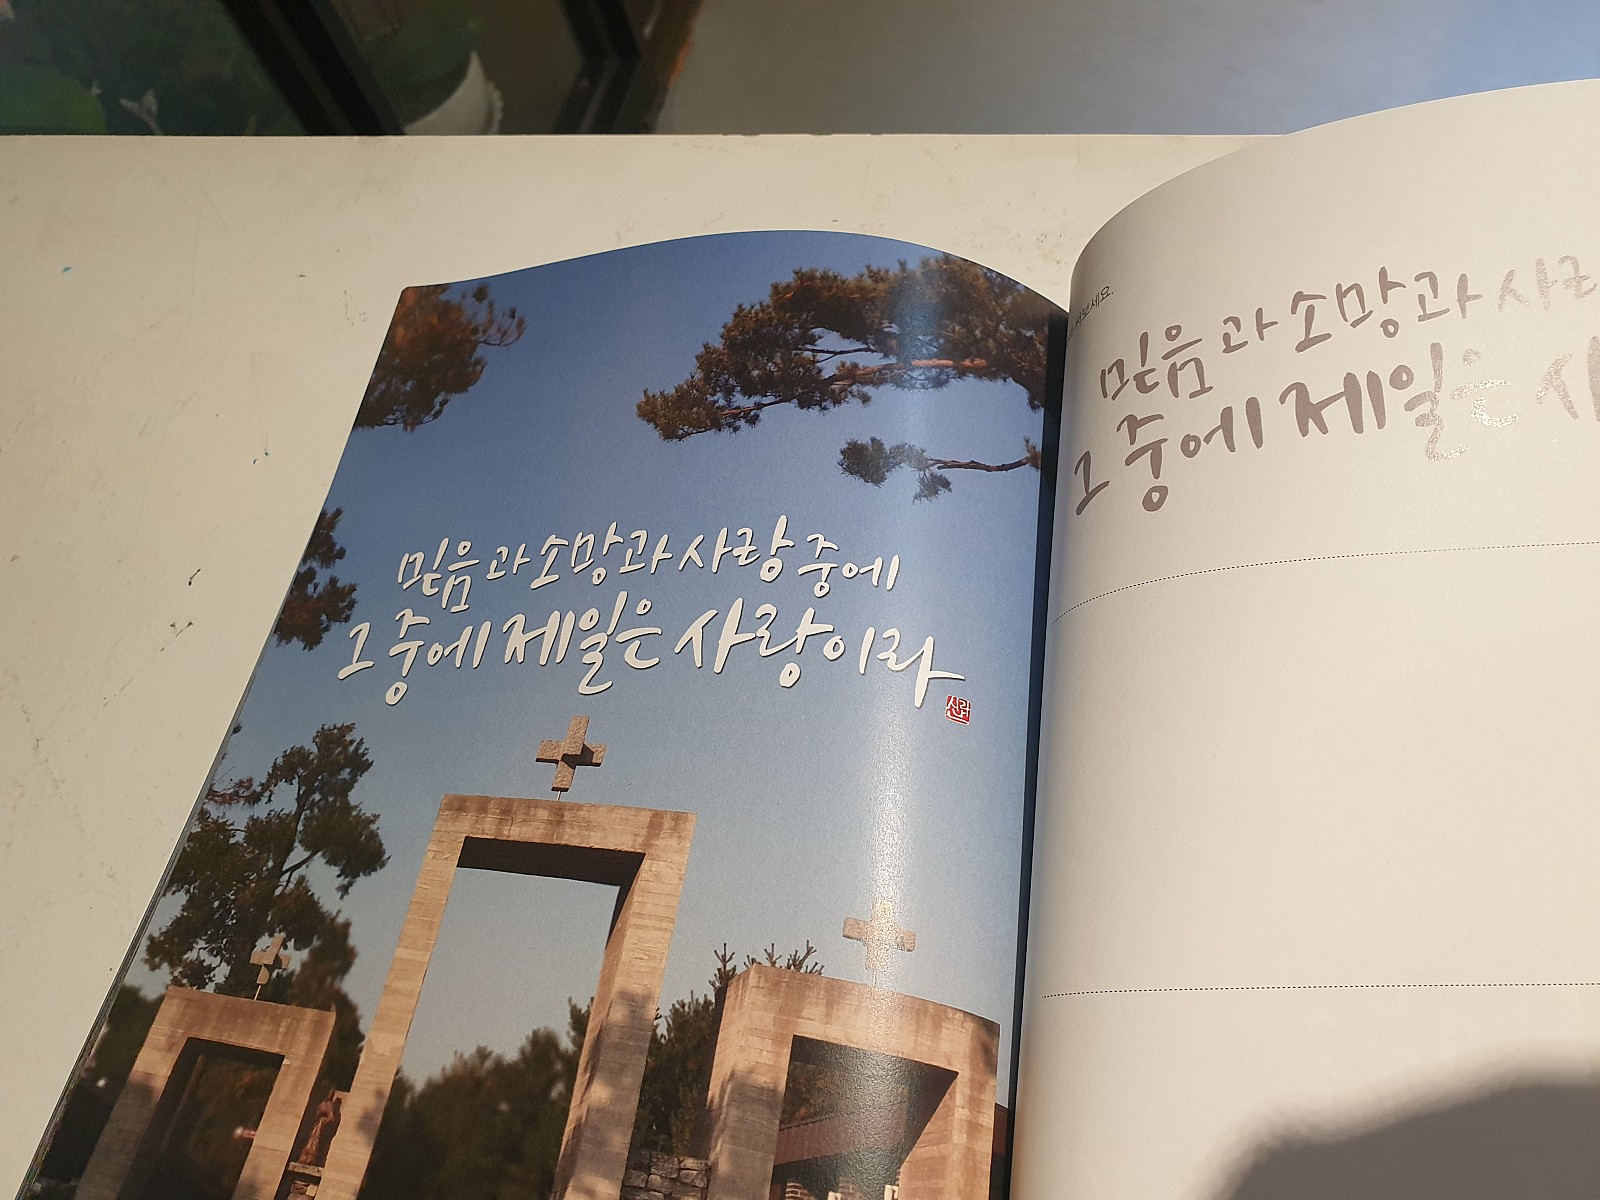 믿음과 소망과 사랑 중에
그 중에 제일은 사랑이라
써보세요.
믿음과 소망과
그 중에 제일은